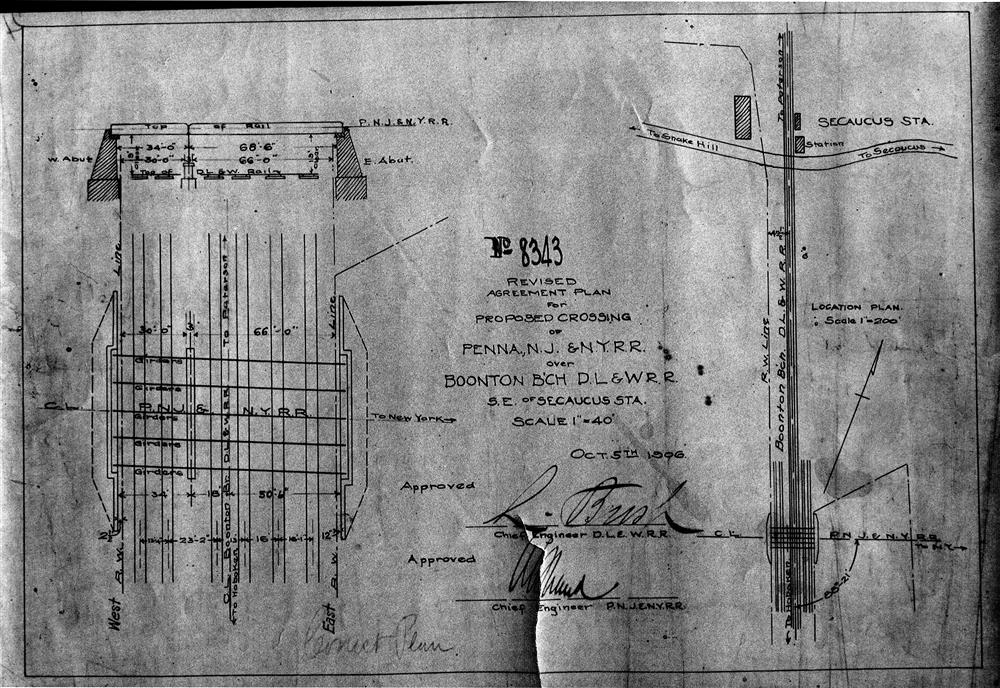 P.N.J.&N.Y.R.R.
Top of Rail
34'-0" 68'-6"
30'-0" 66'-0"
W. Abut. E. Abut.
Top of D.L.&W. Rail
West R.W. Line
East R.W. Line
30'-0" 66'-0"
Girders
Girders
P.N.J. & N.Y.R.R.
Girders
Girders
Girders
To New York
34' 18' 50'-6"
23'-2" 16' 16'-1" 12"
C.L. Boonton Br. D.L.&W.R.R. To Paterson
To Hoboken
No 8343
REVISED
AGREEMENT PLAN
FOR
PROPOSED CROSSING
OF
PENNA., N.J. & N.Y.R.R.
OVER
BOONTON B'CH D.L & W.R.R.
S.E. OF SECAUCUS STA.
SCALE 1"=40'
OCT. 5TH 1906.
Approved
Chief Engineer D.L.& W.R.R.
Approved
Chief Engineer P.N.J.&N.Y.R.R.
Correct Plan
To Paterson
SECAUCUS STA.
Station
To Snake Hill
To Secaucus
R.W. Line
Boonton Bch. D.L. & W.R.R.
LOCATION PLAN.
Scale 1"=200'
C.L.
P.N.J. & N.Y.R.R.
To N.Y.
To Hoboken